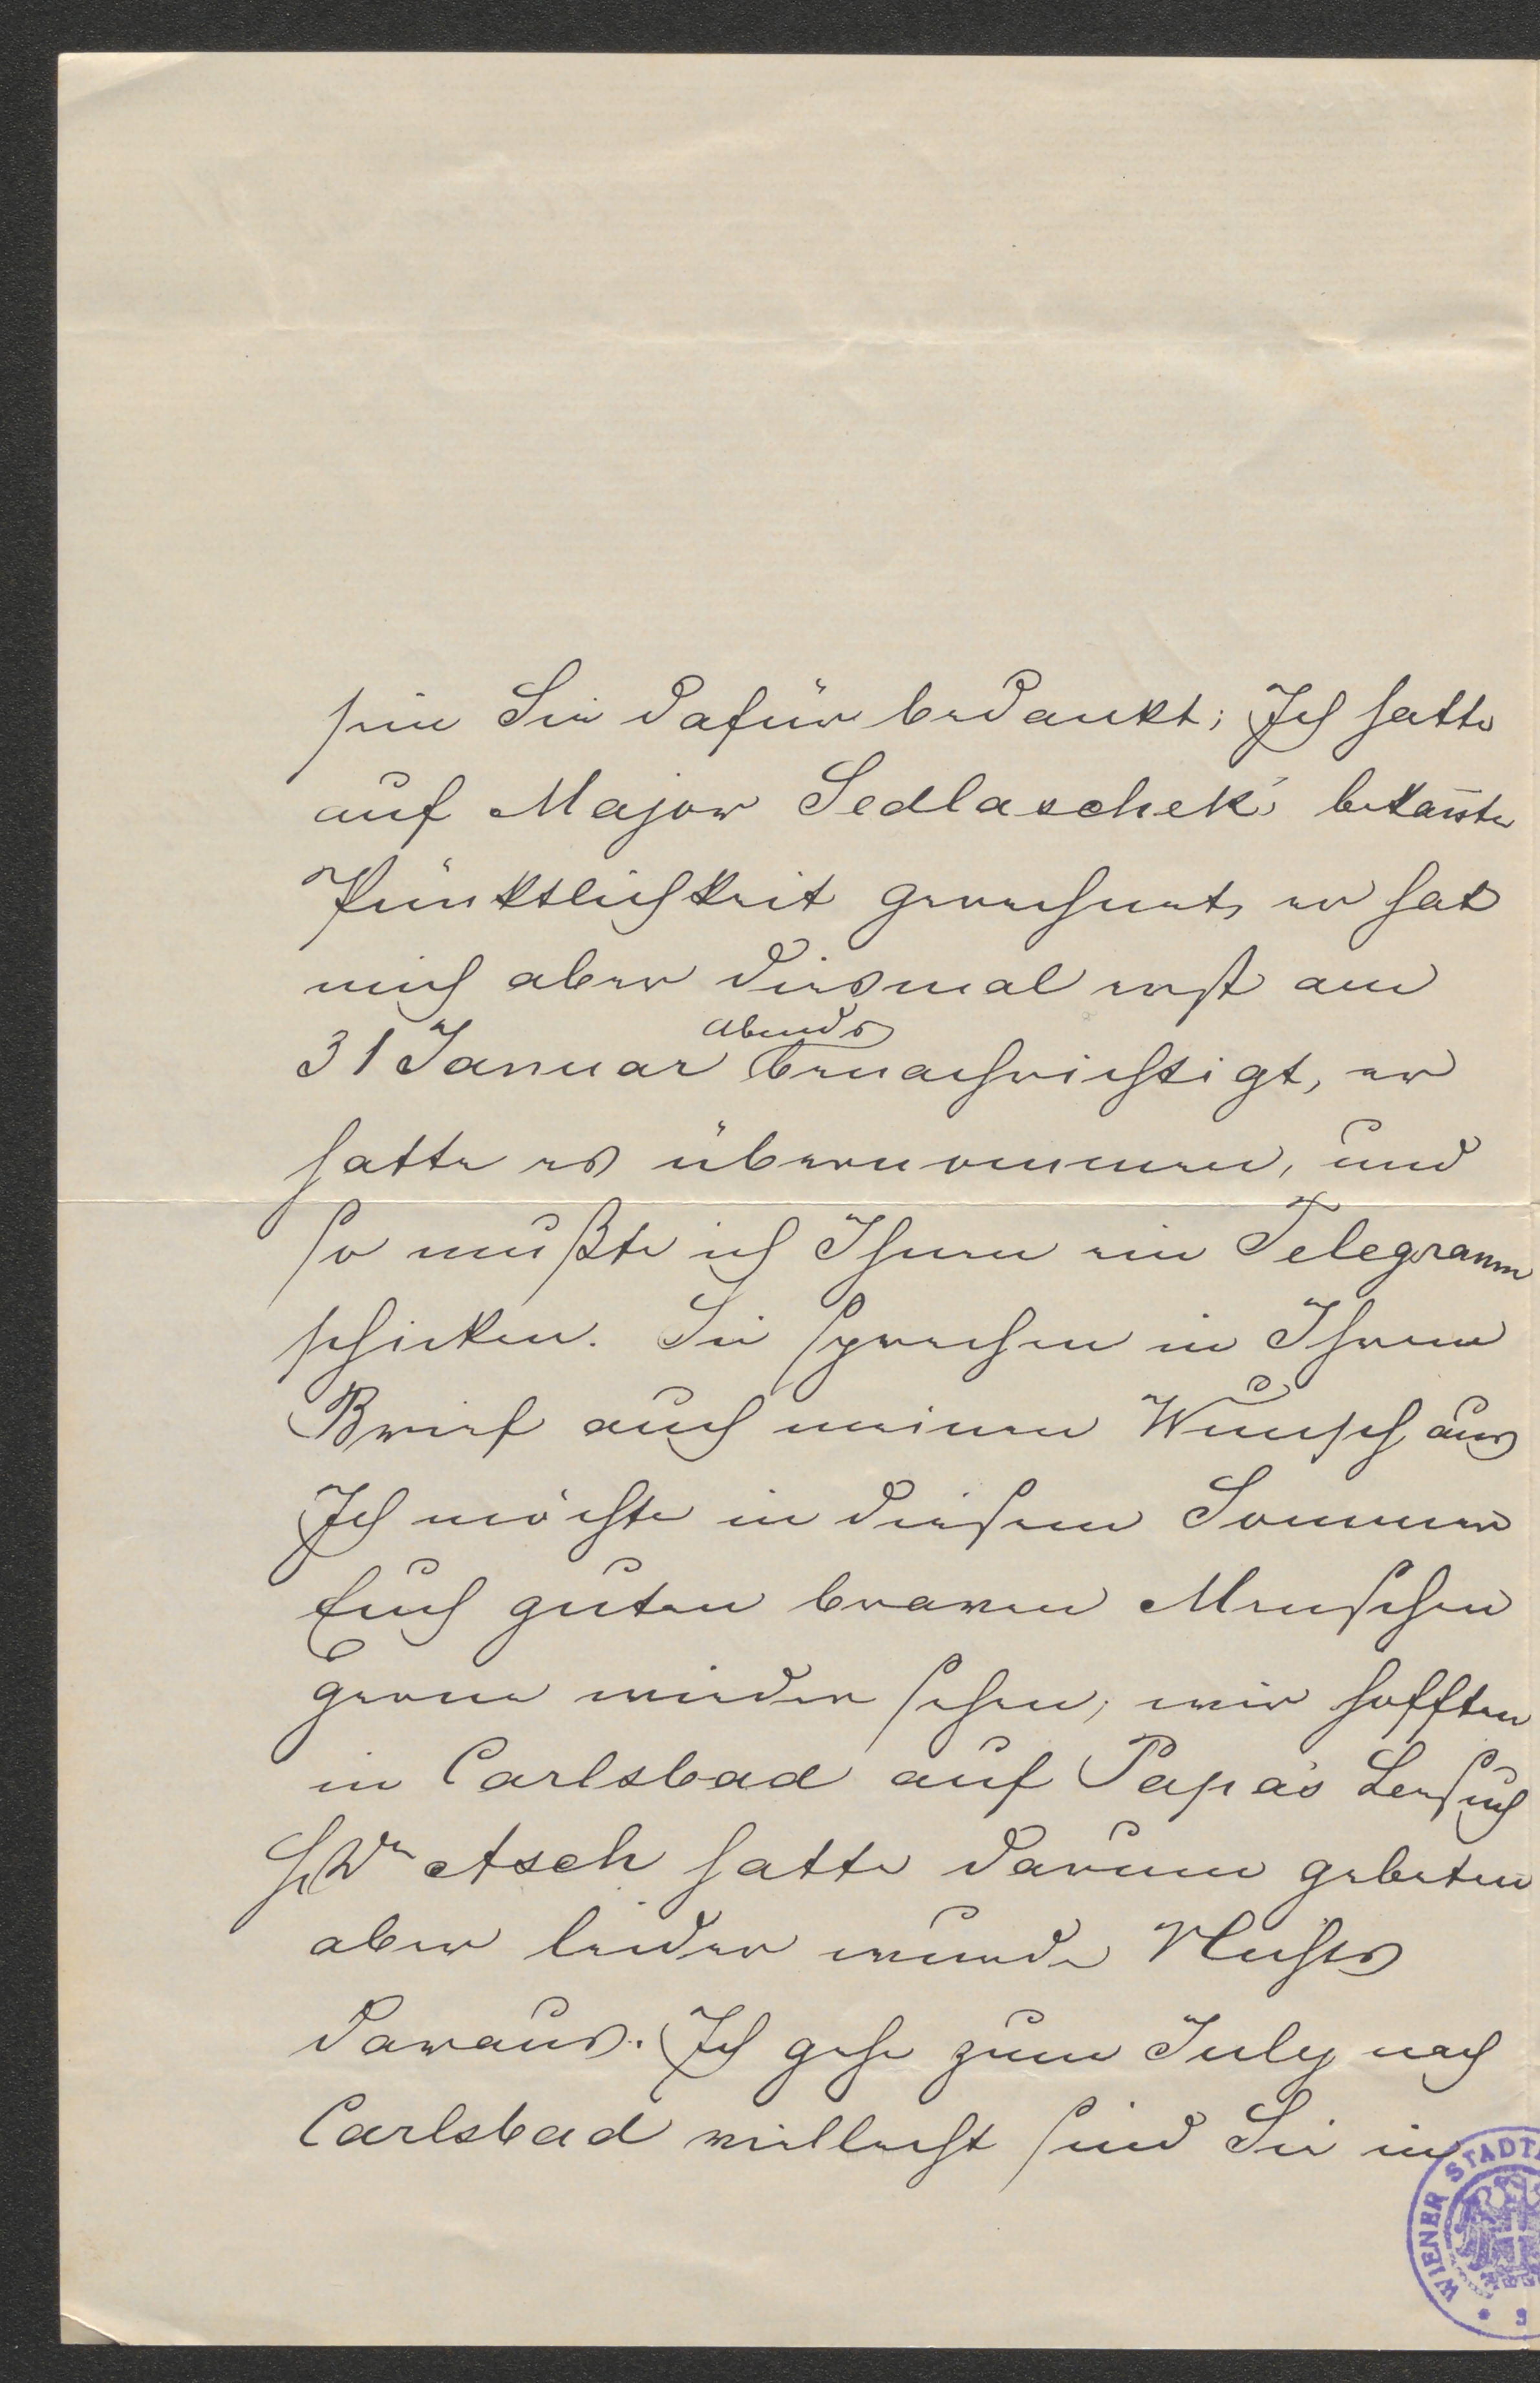 sein Sie dafür bedankt; Ich hatte
auf Major Sedlaschek's bekañte
Pünktlichkeit gerechnet, er hat
mich aber diesmal erst am
abends
31 Januar benachrichtigt, er
hatte es übernommen, und
so mußte ich Ihnen ein Telegramm
schicken. Sie sprechen in Ihrem
Brief auch meinen Wunsch aus
Ich möchte in diesem Sommer
Euch guten braven Menschen
gerne wieder sehen, wir hofften
in Carlsbad auf Papa's Besuch
Asch hatte darum gebeten
aber leider wurde Nichts
daraus. Ich gehe zum July nach
Carlsbad vielleicht sind Sie in
WIENER STADT